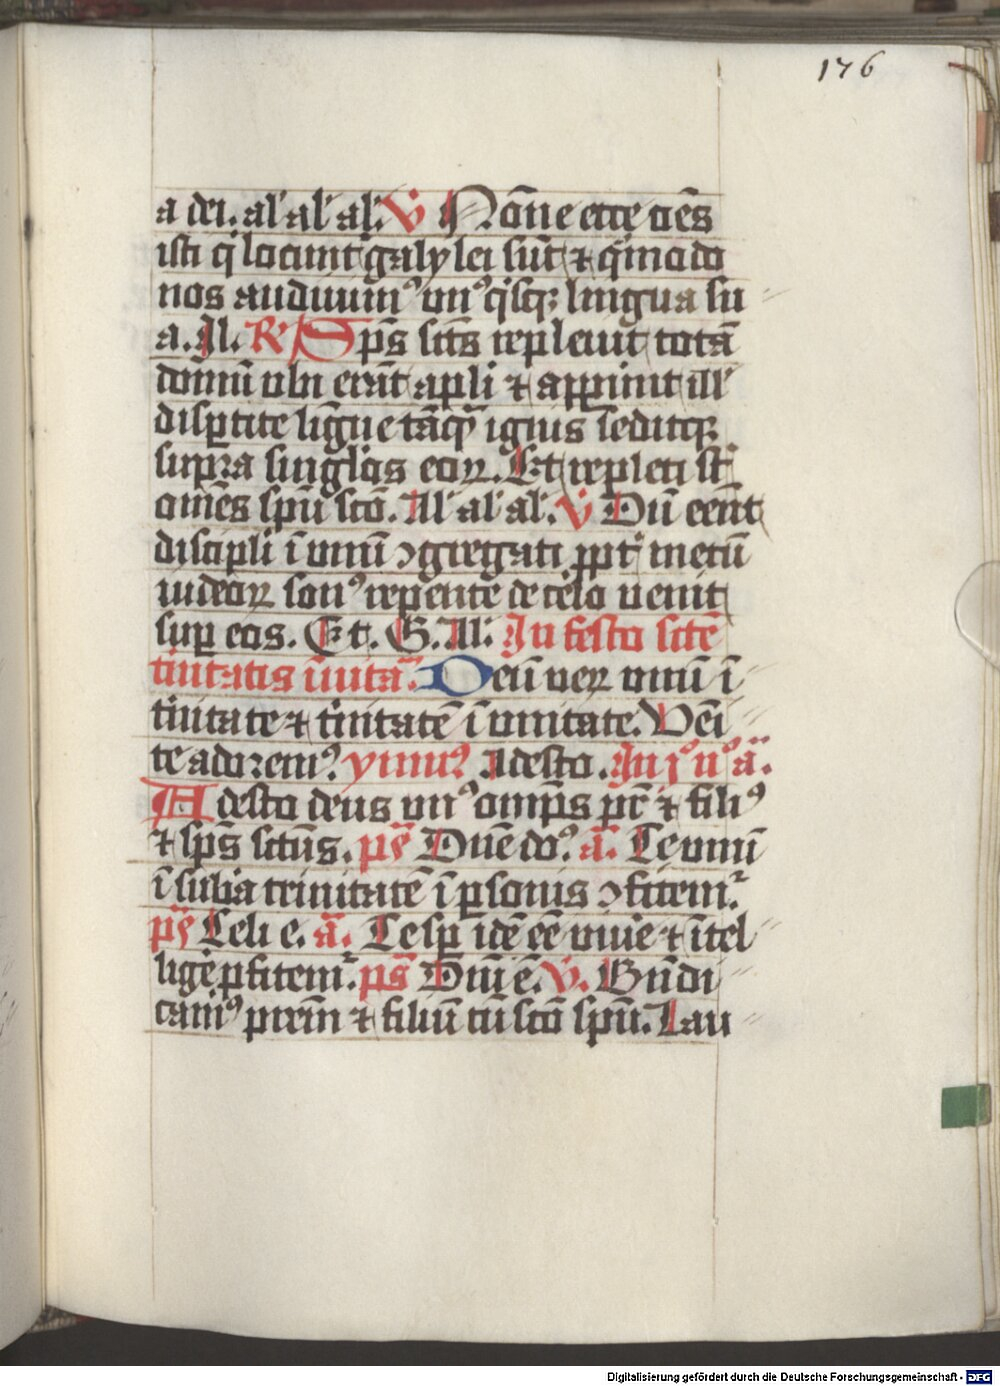 176
a dei. al' al' al'. V Nōne ecce oēs
isti q̄ locunt̄ galylei sūt ⁊ q̄modo
nos audiuim⁹ vn⁹q'sq; lingua su
a. Al. R' Sp̄s sct̄s repleuit totā
domū vbi erāt apl̄i ⁊ apparuit ill'
disp̄tite līgue tāq̄ ignis seditq;
supra singl'os eoꝝ. Et repleti st̄
om̄es spū scō. Al' al' al'. V Dū eent̄
discipl̄i ī vnū ↄgregati ꝓpt' metū
iudeoꝝ son⁹ repente de celo venit
sup eos. Et. G. Al'. In festo scte
t'nitatis īuita. Deū veꝝ vnū ī
t'nitate ⁊ t'nitatē ī vnitate. Veni
te adorem⁹. ymn⁹ Adesto. In j⁰ n⁰ a.
Adesto deus vn⁹ omp̄s pr̄ ⁊ fili⁹
⁊ sp̄s sct̄us. ps̄ Dn̄e do⁹. ā. Te vnū
ī sub'a trinitatē ī ꝑsonis ↄfitem̄.
ps̄ Celi e. ā. Te sp̄ idē eē viue'e ⁊ ītel
lige' ꝓfitem̄. ps̄ Dn̄i ē. V. Bn̄di
cam⁹ prem̄ ⁊ filiū cū scō spū. Lau
Digitalisierung gefördert durch die Deutsche Forschungsgemeinschaft - DFG